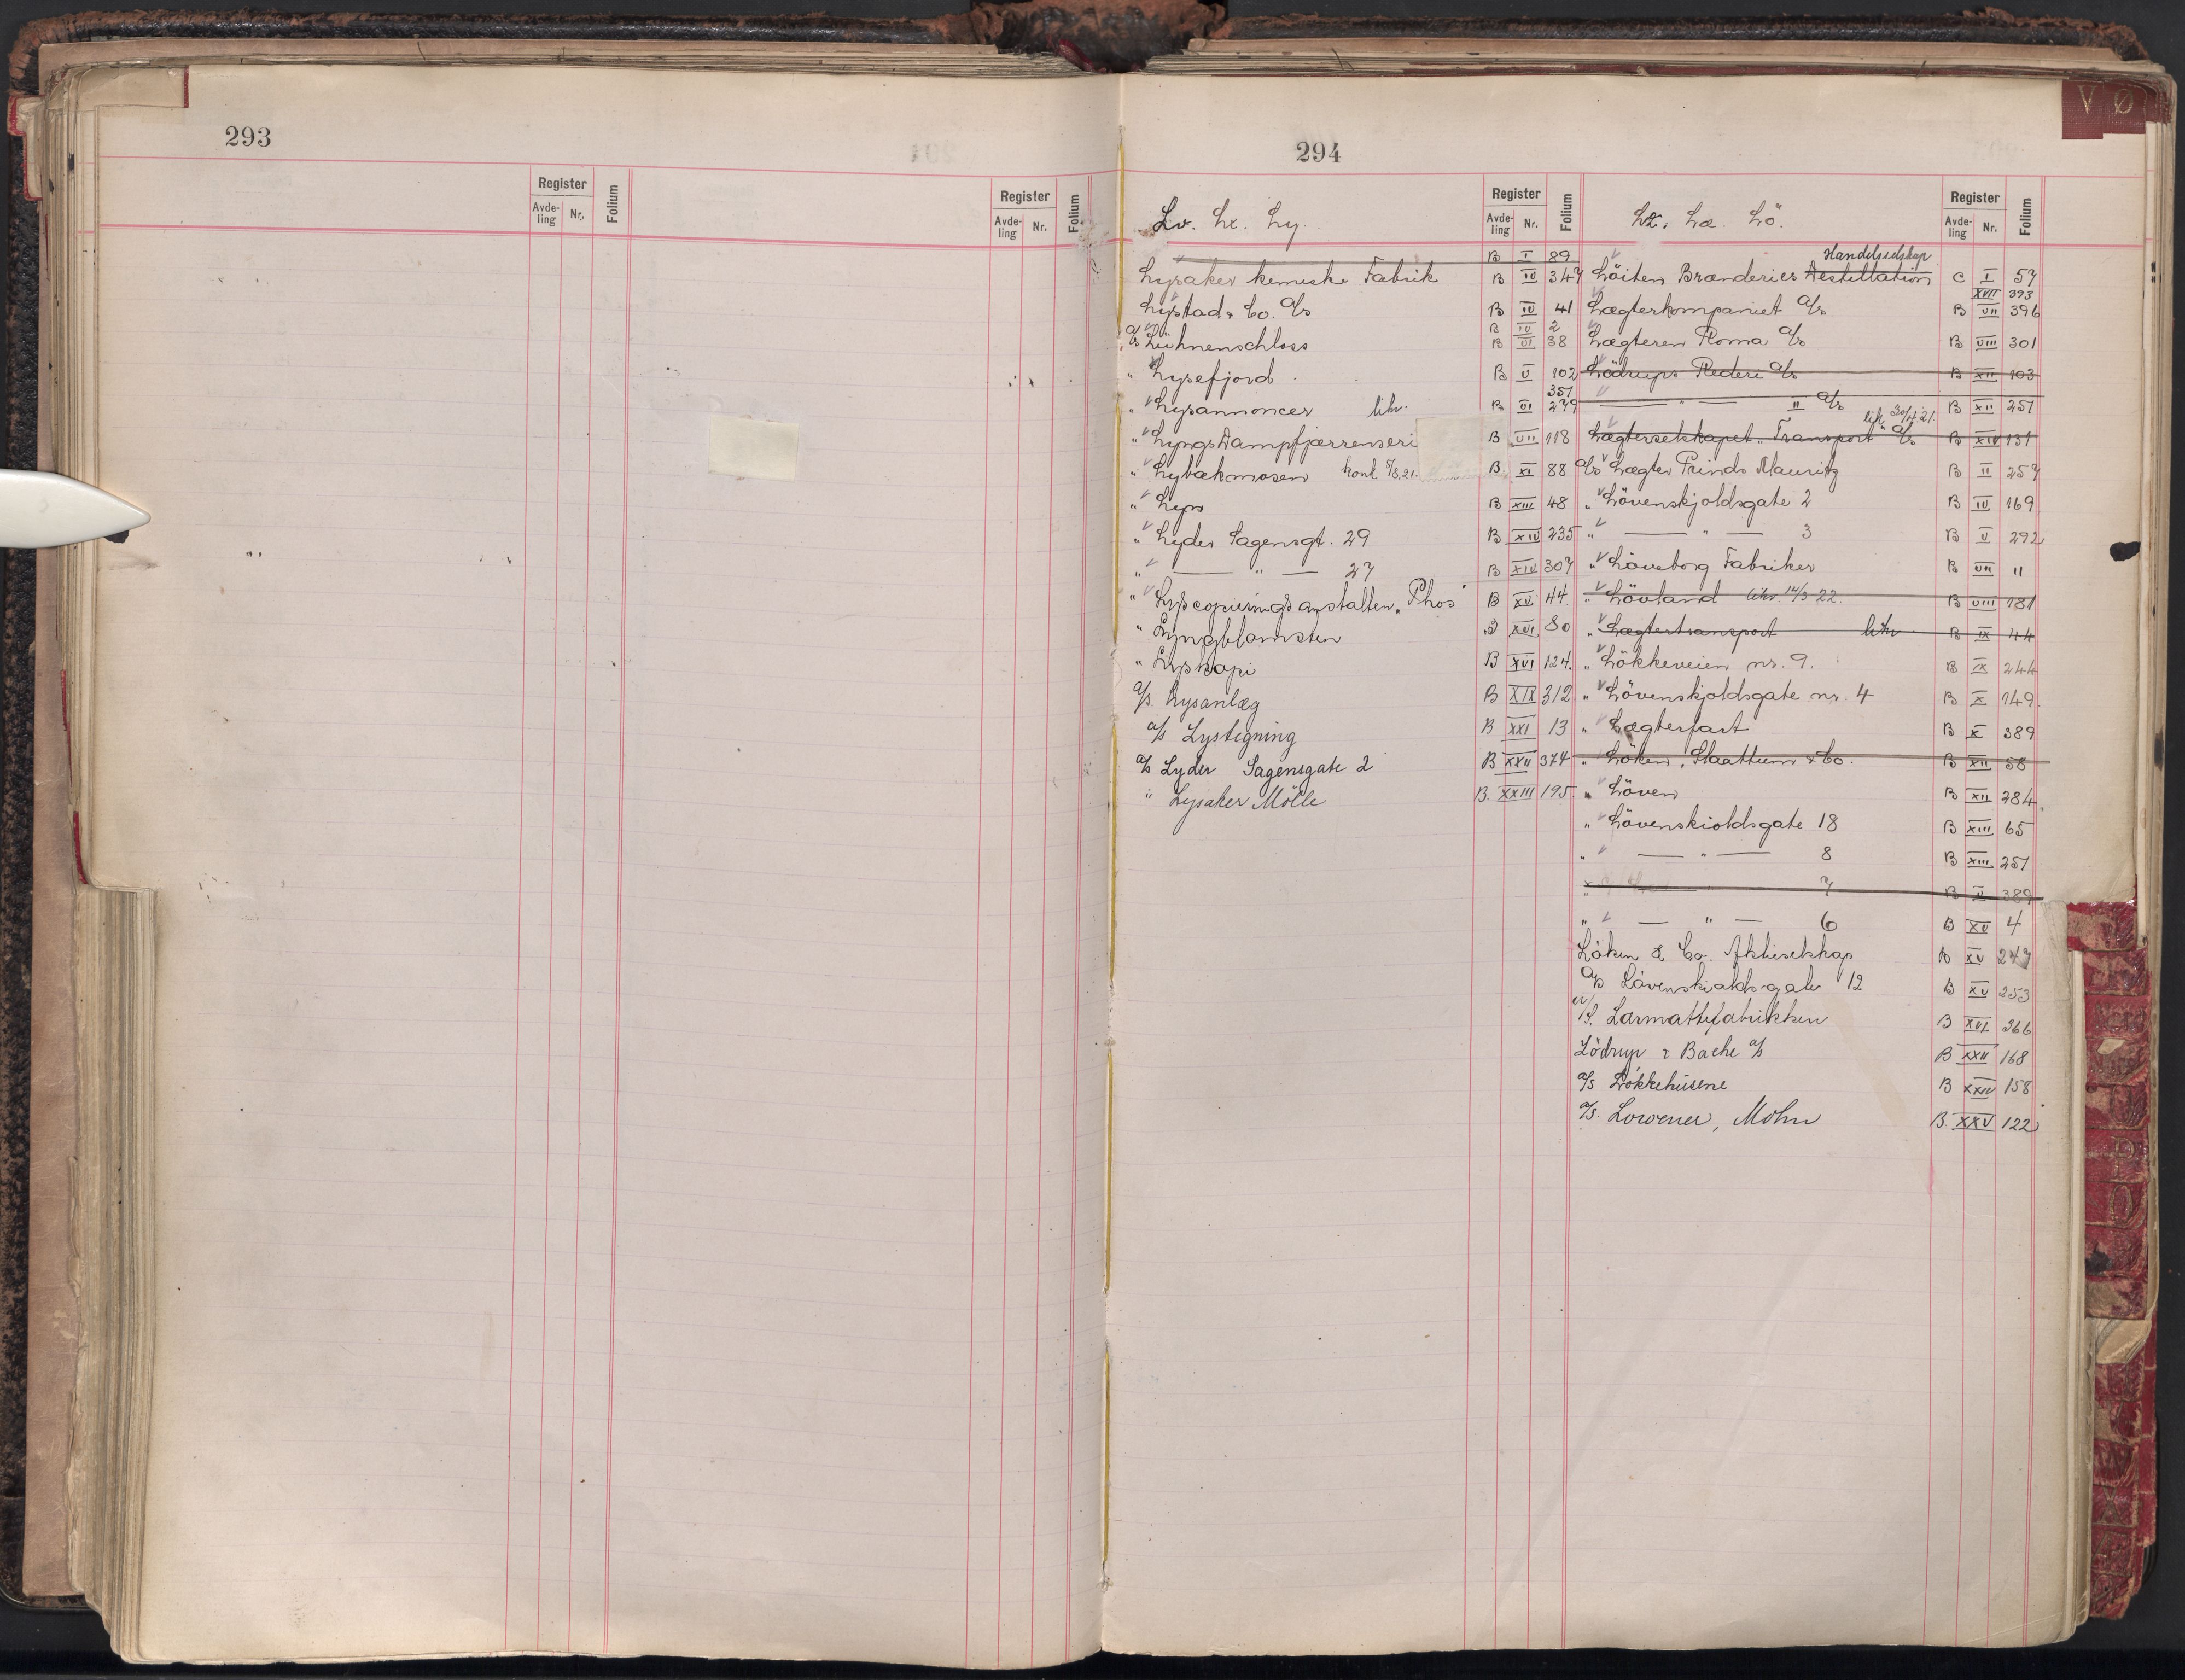 293
Register
Avde-
ling
Nr.
Folium
Register
Avde-
ling
Nr.
Folium
294
V Ø
Lv. Lx. Ly.
Register
Avde-
ling
Nr.
Folium
B I 89
Lysaker kemiske Fabrik B IV 347
Lystad & Co. A/s B IV 41
B IV 2
A/s Lühnenschloss B VI 38
" Lysefjord B V 102
351
" Lysannoncer likv. B VI 279
" Lyngs Dampfjærrenseri B VII 118
" Lybækmosen konk 5/8.21. B. XI 88
" Lyps B XIII 48
" Lyder Sagensgt. 29 B XIV 235
" — " — 27 B XIV 307
" Lyscopieringsanstalten "Phos" B XV 44
" Lyngblomsten B XVI 80
" Lyskopi B XVI 124.
A/S. Lysanlæg B XIX 312
A/s Lystegning B XXI 13
A/s Lyder Sagensgate 2 B XXII 374
" Lysaker Mölle B. XXIII 195
Lz. Læ. Lö.
Register
Avde-
ling
Nr.
Folium
Handelsselskap
Löiten Brænderies Destillation C I 57
XVII 393
Lægterkompaniet A/s B VII 396
Lægteren Roma A/s B VIII 301
Lödrups Rederi A/s B XII 103
— " — II A/s B XII 251
Lægterselskapet "Transport" A/s B XIV 131
A/s Lægter Prinds Mauritz B II 257
" Lövenskjoldsgate 2 B IV 169
" — " — 3 B V 292
" Löveborg Fabriker B VII 11
" Lövland likv. 14/3 22. B VIII 181
" Lægtertransport likv. B IX 44
" Lökkeveien nr. 9. B IX 244
" Lövenskjoldsgate nr. 4 B X 149
" Lægterfart B X 389
" Löken, Slaattum & Co. B XII 58
" Löven B XII 284
" Lövenskioldsgate 18 B XIII 65
" — " — 8 B XIII 251
" 7 B V 389
" — " — 6 B XV 4
Löken & Co. Aktieselskap B XV 247
A/s Lövenskioldsgate 12 B XV 253
A/S. Larmattefabrikken B XVI 366
Lödrup & Bache A/s B XXII 168
A/S Lökkehusene B XXIV 158
A/S. Lowener, Mohn B. XXV 122